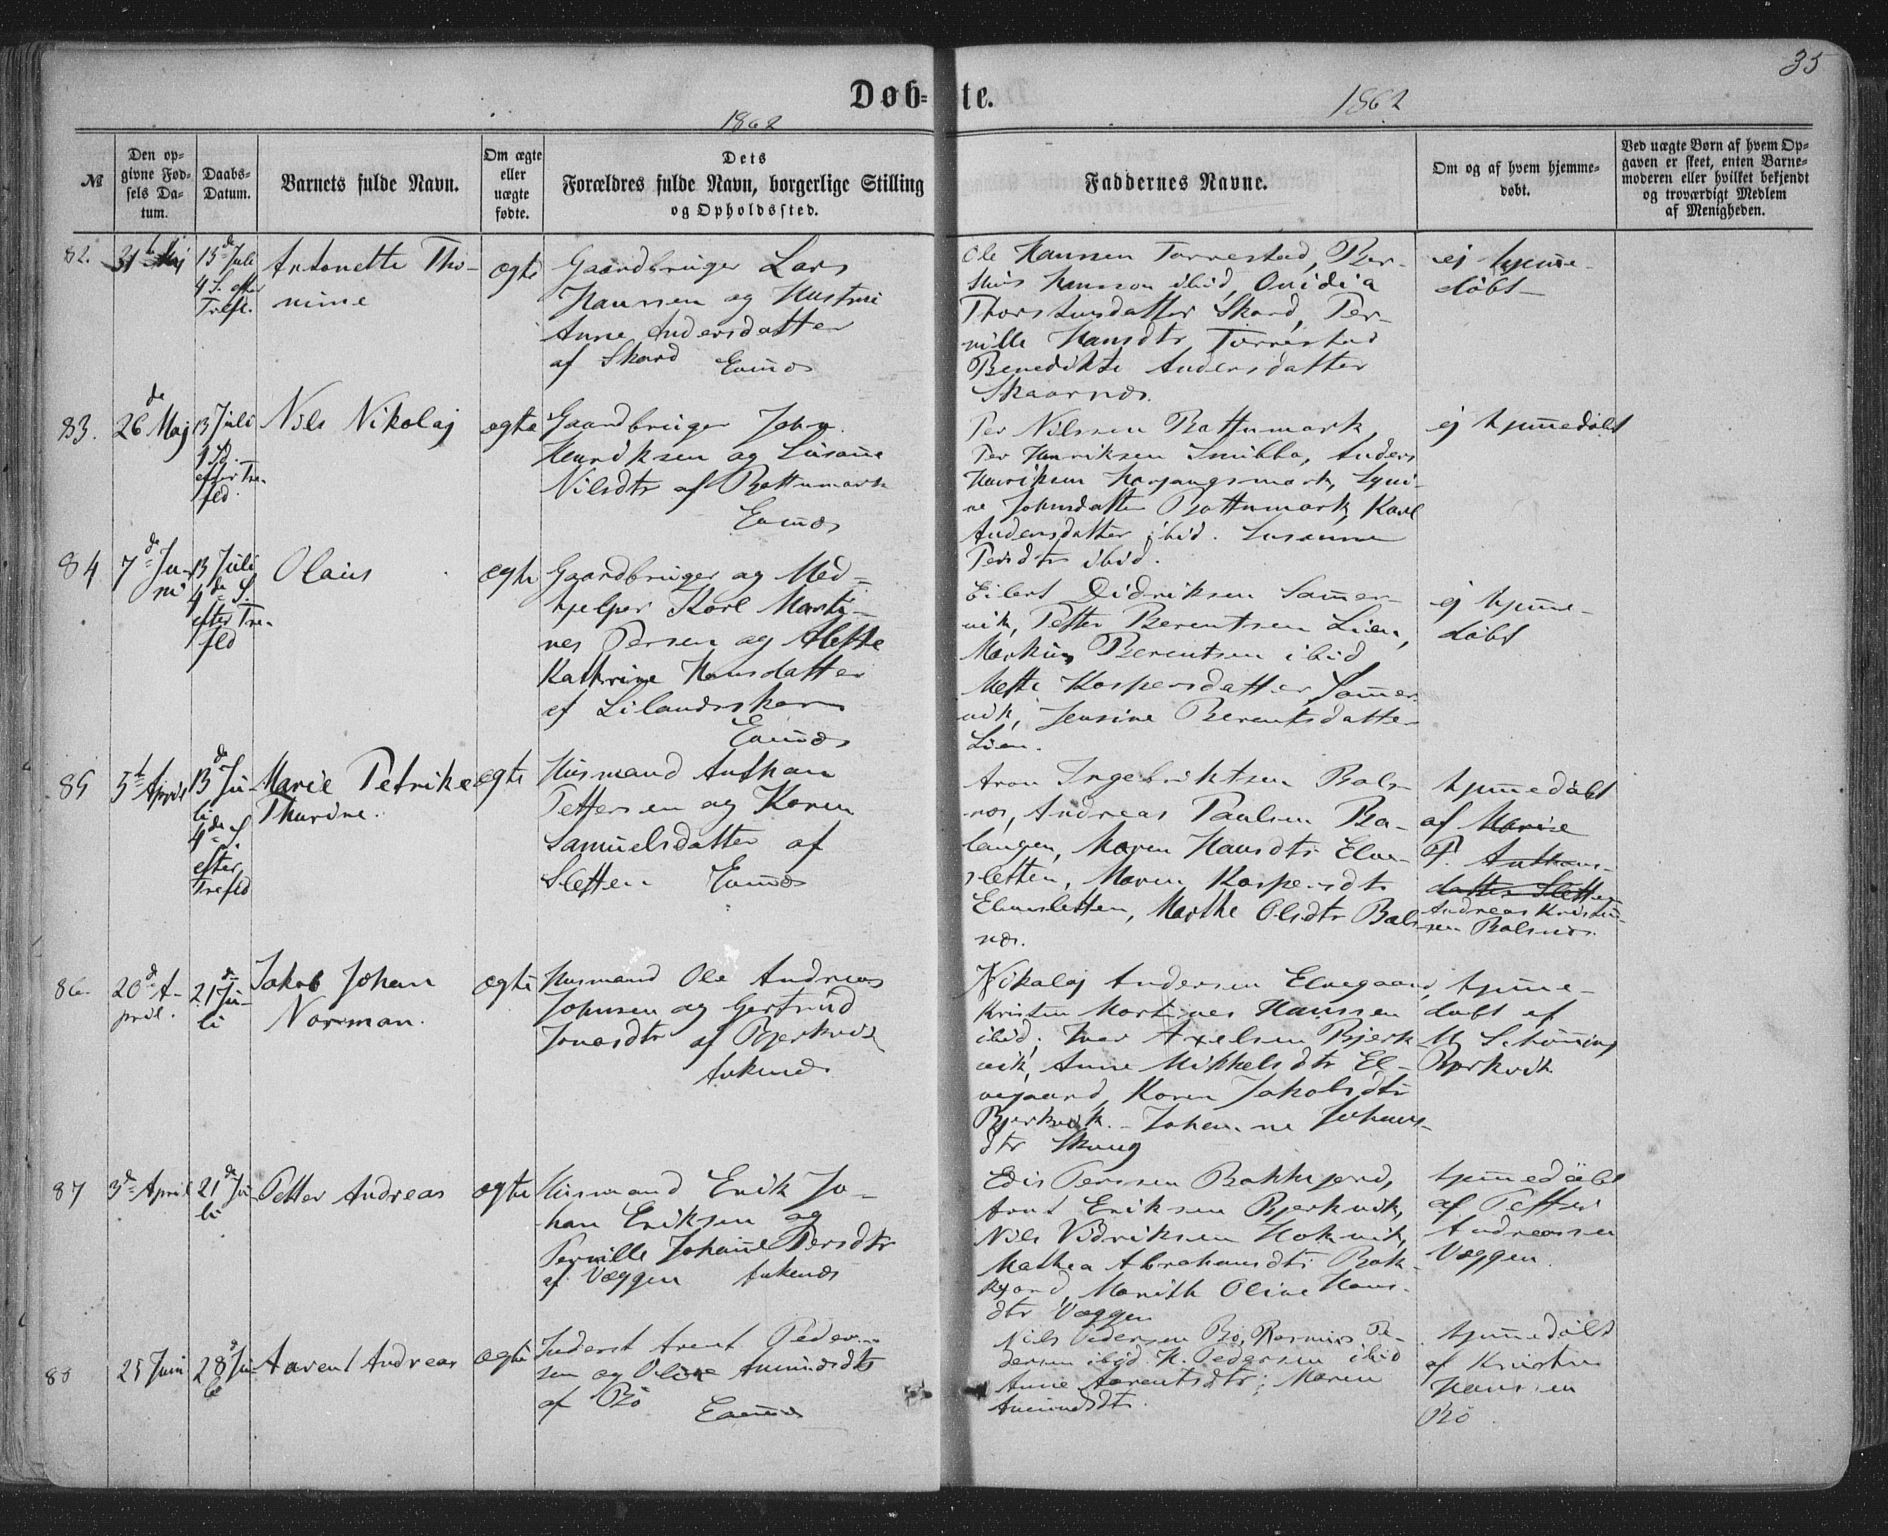 35
Døb= te.
1862
1862
№
Den op=
givne Fød=
sels Da=
tum.
Daabs=
Datum.
Barnets fulde Navn.
Om ægte
eller
uægte
fødte.
Dets
Forældres fulde Navn, borgerlige Stilling
og Opholdssted.
Faddernes Navne.
Om og af hvem hjemme=
døbt.
Ved uægte Børn af hvem Op=
gaven er skeet, enten Barne=
moderen eller hvilket bekjendt
og troværdigt Medlem
af Menigheden.
82.
31 Maj
13de Juli
4 S. efter
Trefl.
Antonette Tho-
mine
ægte
Gaardbruger Lars
Hansen og Hustrue
Anne Andersdatter
af Skard Evenæs
Ole Hansen Tarrestad, Ber-
Hansen ibid, Ovidia
Thorstensdatter Skard, Per-
nille Hansdtr Tarrestad
Benedikte Andersdatter
Skaarnæs.
ej hjemme-
døbt
83.
26de Maj
13 Juli
4 S.
efter Tre-
fld.
Nils Nikolaj
ægte
Gaardbruger John
Henriksen og Susanne
Nilsdtr af Bottnmark
Evenæs
Per Nilssen Bottnmark
Per Henriksen Snubba, Anders
Henriksen Herjangsmark,
Johnsdatter Bottnmark,
Andersdatter ibid. Susanne
Persdtr ibid.
ej hjemmedøbt
84
7de Ju-
ni
13 Juli
4de S.
efter Tre-
fld
Olaus
ægte
Gaardbruger og Med-
hjelper Karl Marti-
nes Persen og Alette
Kathrine Hansdatter
af Lilandsskar
Evenæs
Eilert Didriksen Sommer-
vik, Petter Berentsen Lien,
Markus Berentsen ibid
Mette Kaspersdatter Sommer-
vik, Jensine Berentsdatter
Lien.
ej hjemme-
døbt
85
5te April
13de Ju-
li
4de S.
efter
Trefld
Marie Petrike
Thurine.
ægte
Husmand Anthon
Pettersen og Karen
Samuelsdatter af
Sletten Evenæs
Aron Ingebriktsen Bals-
næs, Andreas Paulsen Ba-
langen, Maren Hansdtr Elve-
sletten, Maren Kaspersdtr
Elvesletten, Marthe Olsdtr Bals-
næs.
hjemmedøbt
af Marie
P. Anthons-
datter Sletten
Andreas Kristen-
sen Balsnæs.
86.
20de A-
pril.
21de Ju-
li
Jakob Johan
Norman.
ægte
Husmand Ole Andreas
Johnsen og Gertrud
Jonasdtr af Bjerkvik
Ankenæs
Nikolaj Andersen Elvegaard,
Kristen Martines Hanssen
ibid; Iver Axelsen Bjerk-
vik, Anne Mikkelsdtr El-
vegaard, Karen Jakobsdtr
Bjerkvik. Johanne Johans-
dtr Skoug
hjemme-
døbt af
M. Schønning
Bjerkvik
87
3de April
21de Ju-
li
Petter Andreas
ægte
Husmand Erik Jo-
han Eriksen og
Pernille Johanne Persdtr
af Væggen Ankenæs
Edis Perssen Bakkejord,
Arnt Eriksen Bjerkvik,
Nils Vidriksen Hokvik,
Mathea Abrahamsdtr Bak-
kejord, Marith Oline Hans-
dtr Væggen
hjemmedøbt
af Petter
Andreassen
Væggen.
88
25 Juni
28de Ju-
li
Aarent Andreas
ægte
Inderst Arent Peder-
sen og Oline Amundsdtr
af Bö Evenæs
Nils Pedersen Bö, Rasmus Pe-
dersen ibid. H. Pedersen ibid
Anne Aarentsdtr; Maren
Amundsdtr
hjemmedøbt
af Kristen
Hanssen
Bö.